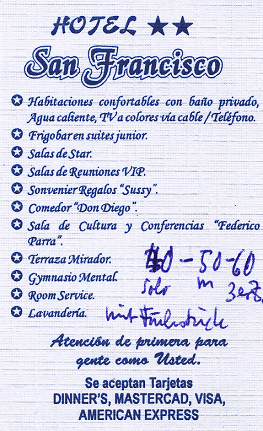 HOTEL ★★
San Francisco
Habitaciones confortables con baño privado,
Agua caliente, TV a colores vía cable / Teléfono.
Frigobar en suites junior.
Salas de Star.
Salas de Reuniones VIP.
Sonvenier Regalos "Sussy".
Comedor "Don Diego".
Sala de Cultura y Conferencias "Federico
Parra".
Terraza Mirador.
Gymnasio Mental.
Room Service.
Lavandería.
40 - 50 - 60
Solo m 3er
mit Frühstück
Atención de primera para
gente como Usted.
Se aceptan Tarjetas
DINNER'S, MASTERCAD, VISA,
AMERICAN EXPRESS